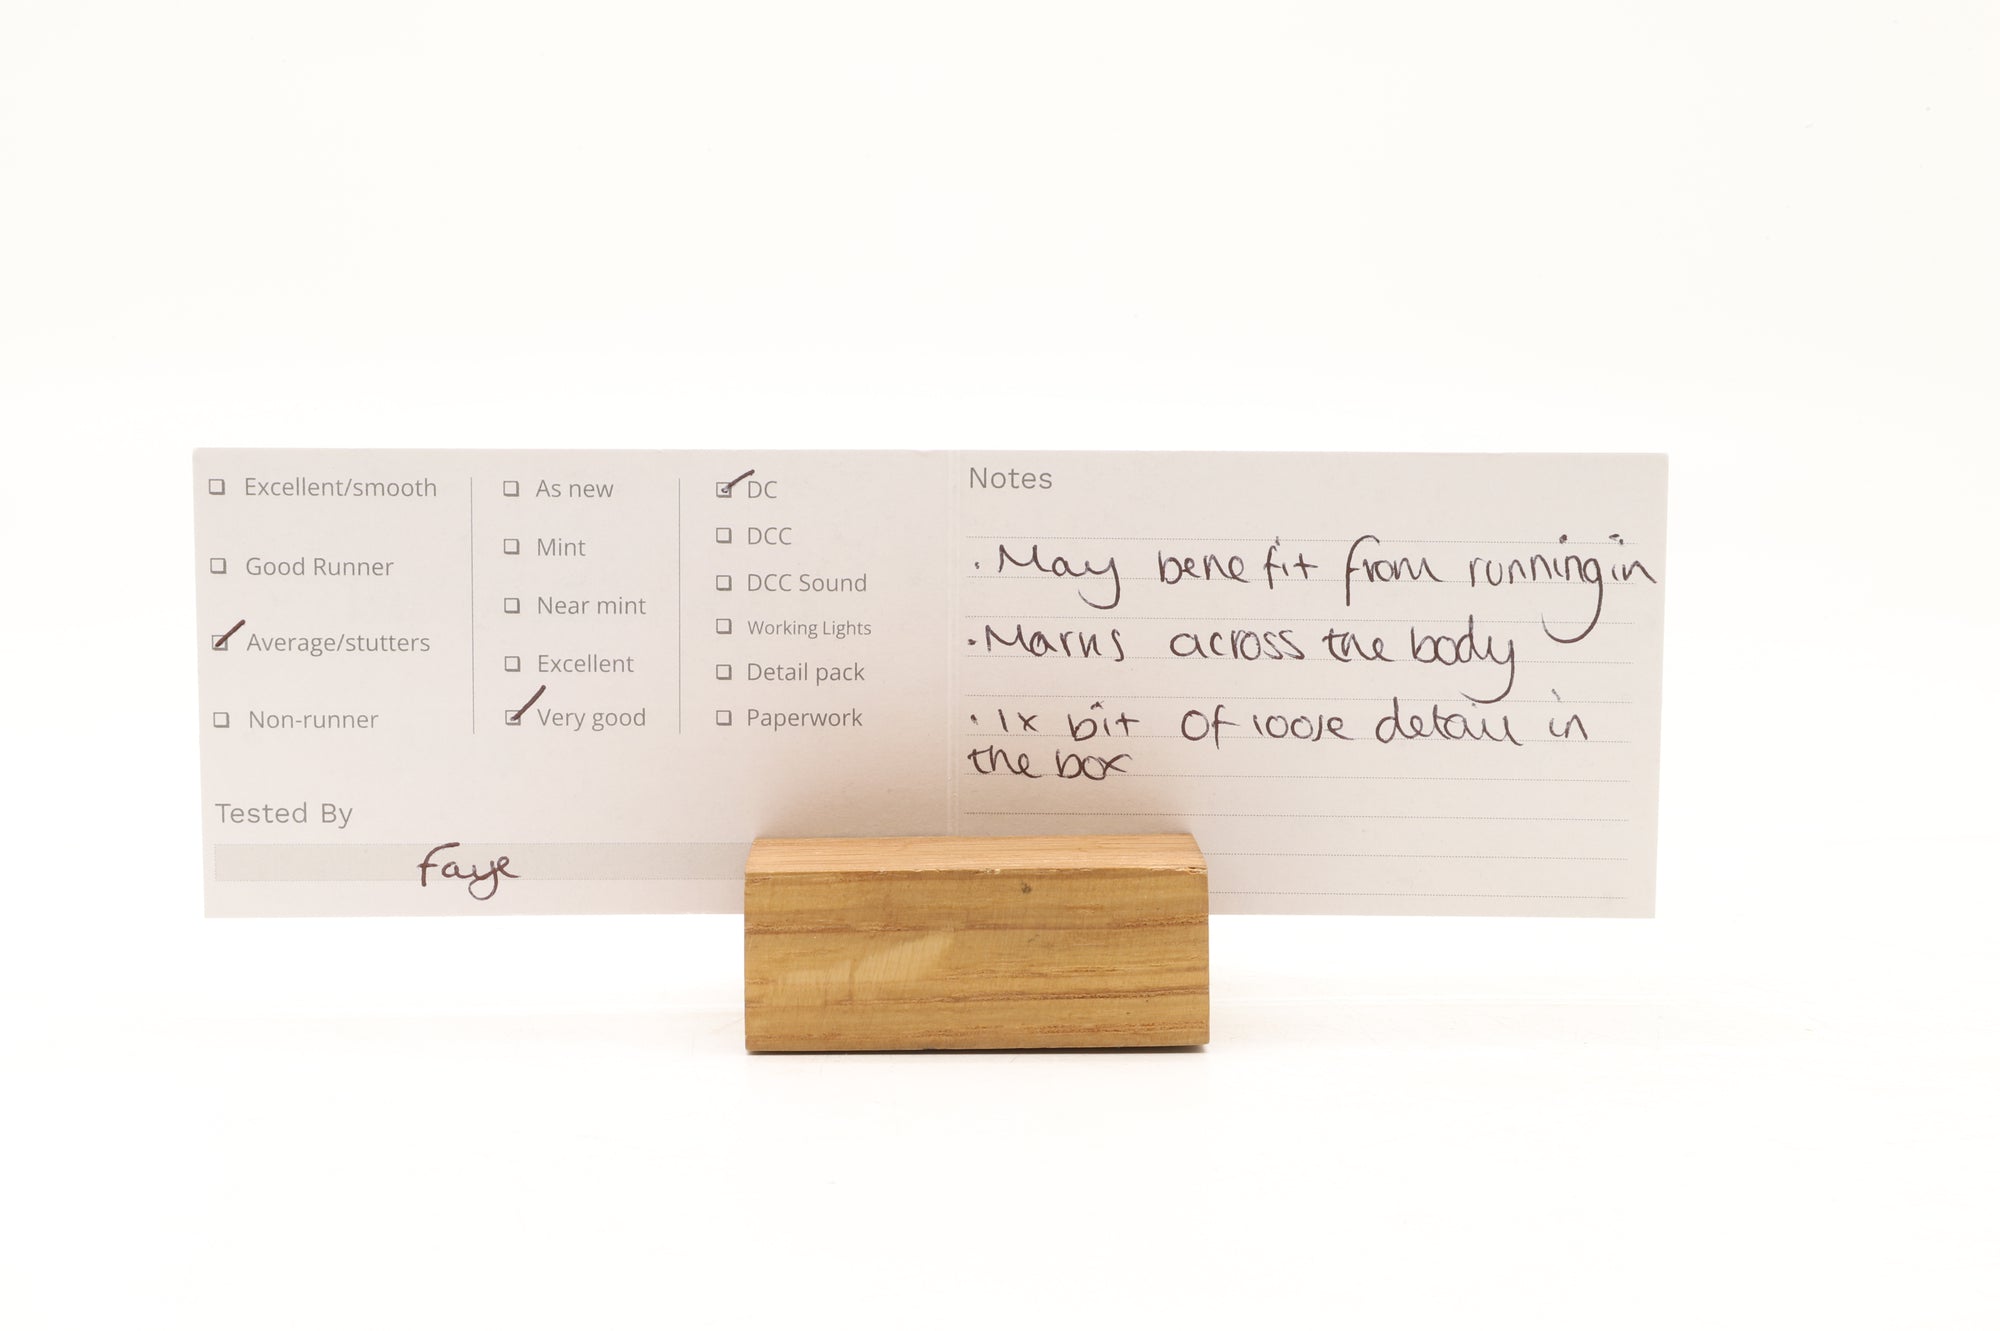 Excellent/smooth
Good Runner
Average/stutters
Non-runner
As new
Mint
Near mint
Excellent
Very good
DC
DCC
DCC Sound
Working Lights
Detail pack
Paperwork
Tested By
Faye
Notes
· May benefit from running in
· Marks across the body
· 1x bit of loose detail in
the box